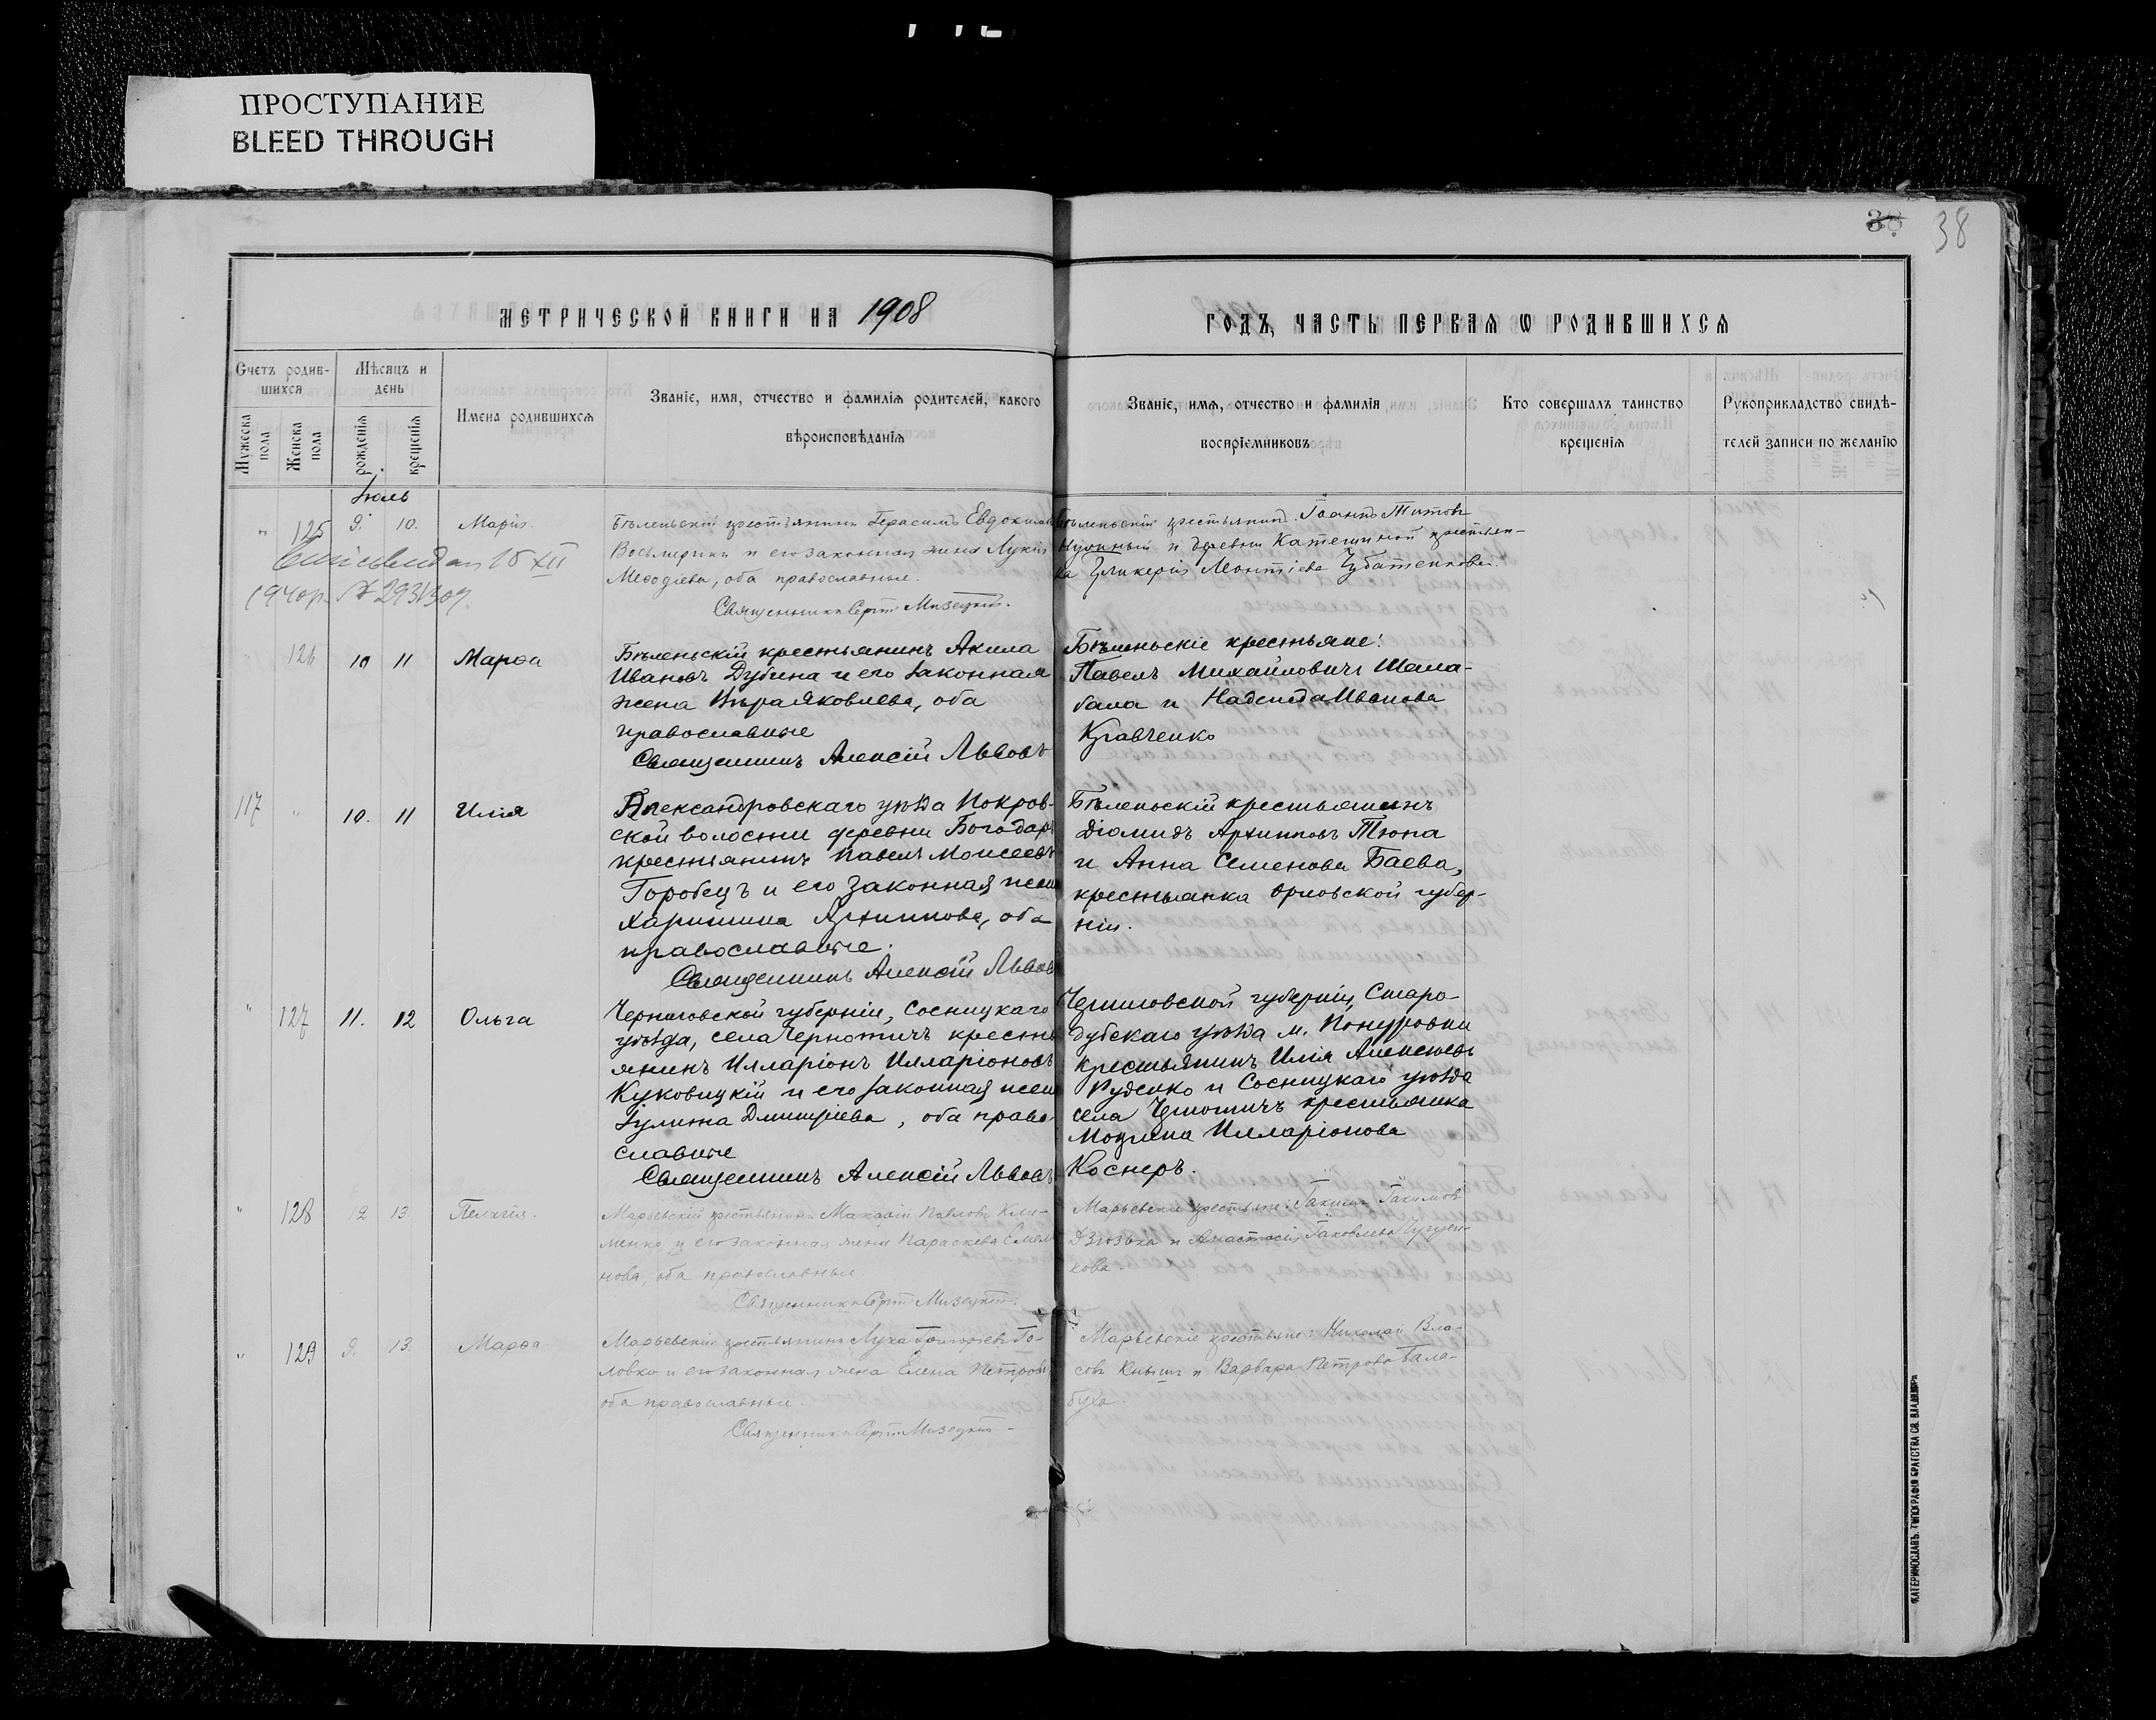 ПРОСТУПАНИЕ
BLEED THROUGH
38
38
МЕТРИЧЕСКОЙ КНИГИ НА 1908
ГОДЪ, ЧАСТЬ ПЕРВАЯ Ѡ РОДИВШИХСЯ
Счетъ родив-
шихся
Мужеска пола
Женска пола
Мѣсяцъ и
день
рожденія
крещенія
Имена родившихся
Званіе, имя, отчество и фамилія родителей, какого
вѣроисповѣданія
Званіе, имя, отчество и фамилія
воспріемниковъ
Кто совершалъ таинство
крещенія
Рукоприкладство свидѣ-
телей записи по желанію
Іюль
" 125 9. 10. Марія.
Бѣленьскій крестьянинъ Герасимъ Евдокимовъ
Восьмерикъ и его законная жена Лукія
Меѳодіева, оба православные.
Священникъ Мизецкій.
Бѣленьскій крестьянинъ Іоаннъ Титовъ
и деревни крестьян-
ка Гликерія Леонтіева Чубатенкова.
15 XII
1940 р. № 293/309.
126 10 11 Марѳа
Бѣленьскій крестьянинъ Акила
Ивановъ Дубина и его законная
жена Вѣра Яковлева, оба
православные
Священникъ Алексій Львовъ
Бѣленьскіе крестьяне:
Павелъ Михайловичъ Шала-
бала и Надежда Иванова
Кравченко
117 " 10. 11 Илія
Александровскаго уѣзда Покров-
ской волости деревни Богодаръ
крестьянинъ Павелъ Моисеевъ
Горобецъ и его законная жена
Харитина Архиппова, оба
православные.
Священникъ Алексій Львовъ
Бѣленьскій крестьянинъ
Діомидъ Архипповъ Тюпа
и Анна Семенова Баева,
крестьянка Орловской губер-
ніи.
" 127 11. 12 Ольга
Черниговской губерніи, Сосницкаго
уѣзда, села Чернотичъ кресть
янинъ Илларіонъ Илларіоновъ
Куковицкій и его законная жена
Іулита Дмитріева, оба право
славные
Священникъ Алексій Львовъ
Черниговской губерніи, Старо-
дубскаго уѣзда м. Понуровки
крестьянинъ Илія Алексѣевъ
Руденко и Сосницкаго уѣзда
села Чернотичъ крестьянка
Илларіонова
Коснеръ.
" 128 12 13. Пелагія.
Марьевскій крестьянинъ Макарій Павловъ Кли-
менко и его законная жена Параскева Емелья
нова, оба православные.
Священникъ Мизецкій.
Марьевскіе крестьяне: Іакимъ Іакимовъ
Дзюзька и Анастасія Іаковлева
кова.
" 129 9. 13. Марѳа
Марьевскій крестьянинъ Лука Григорьевъ Го-
ловко и его законная жена Елена Петрова
оба православные.
Священникъ Мизецкій
Марьевскіе крестьяне: Николай Вла-
совъ Кнышъ и Варвара Петрова Бала-
буха.
ЕКАТЕРИНОСЛАВЪ. ТИПОГРАФІЯ БРАТСТВА СВ. ВЛАДИМІРА